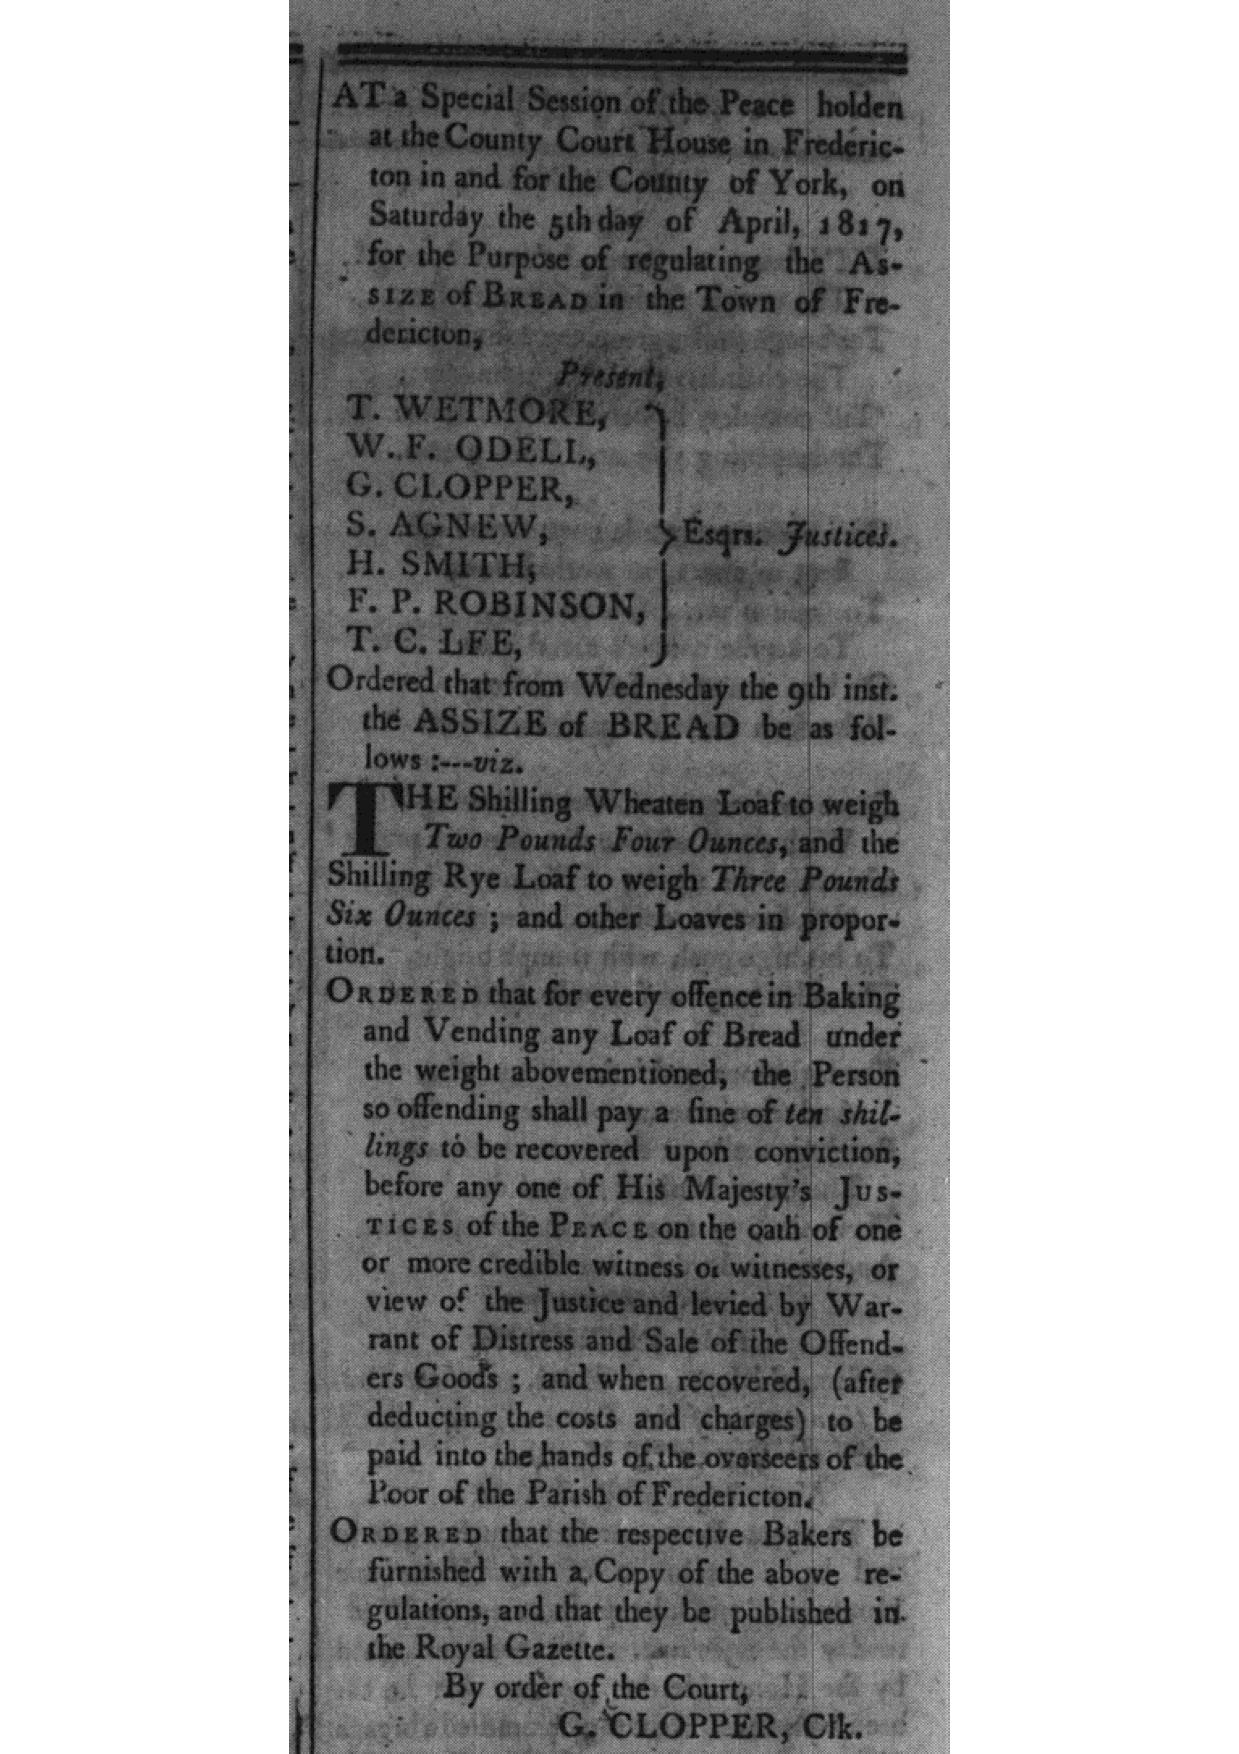 AT a Special Session of the Peace holden
at the County Court House in Frederic-
ton in and for the County of York, on
Saturday the 5th day of April, 1817,
for the Purpose of regulating the As-
SIZE of BREAD in the Town of Fre-
dericton,
Present,
T. WETMORE,
W. F. ODELL,
G. CLOPPER,
S. AGNEW,
H. SMITH,
F. P. ROBINSON,
T. C. LEE,
Esqrs. Justices.
Ordered that from Wednesday the 9th inst.
the ASSIZE of BREAD be as fol-
lows :---viz.
THE Shilling Wheaten Loaf to weigh
Two Pounds Four Ounces, and the
Shilling Rye Loaf to weigh Three Pounds
Six Ounces ; and other Loaves in propor-
tion.
ORDERED that for every offence in Baking
and Vending any Loaf of Bread under
the weight abovementioned, the Person
so offending shall pay a fine of ten shil-
lings to be recovered upon conviction,
before any one of His Majesty's JUS-
TICES of the PEACE on the oath of one
or more credible witness or witnesses, or
view of the Justice and levied by War-
rant of Distress and Sale of the Offend-
ers Goods ; and when recovered, (after
deducting the costs and charges) to be
paid into the hands of the overseers of the
Poor of the Parish of Fredericton.
ORDERED that the respective Bakers be
furnished with a Copy of the above re-
gulations, and that they be published in
the Royal Gazette.
By order of the Court,
G. CLOPPER, Clk.